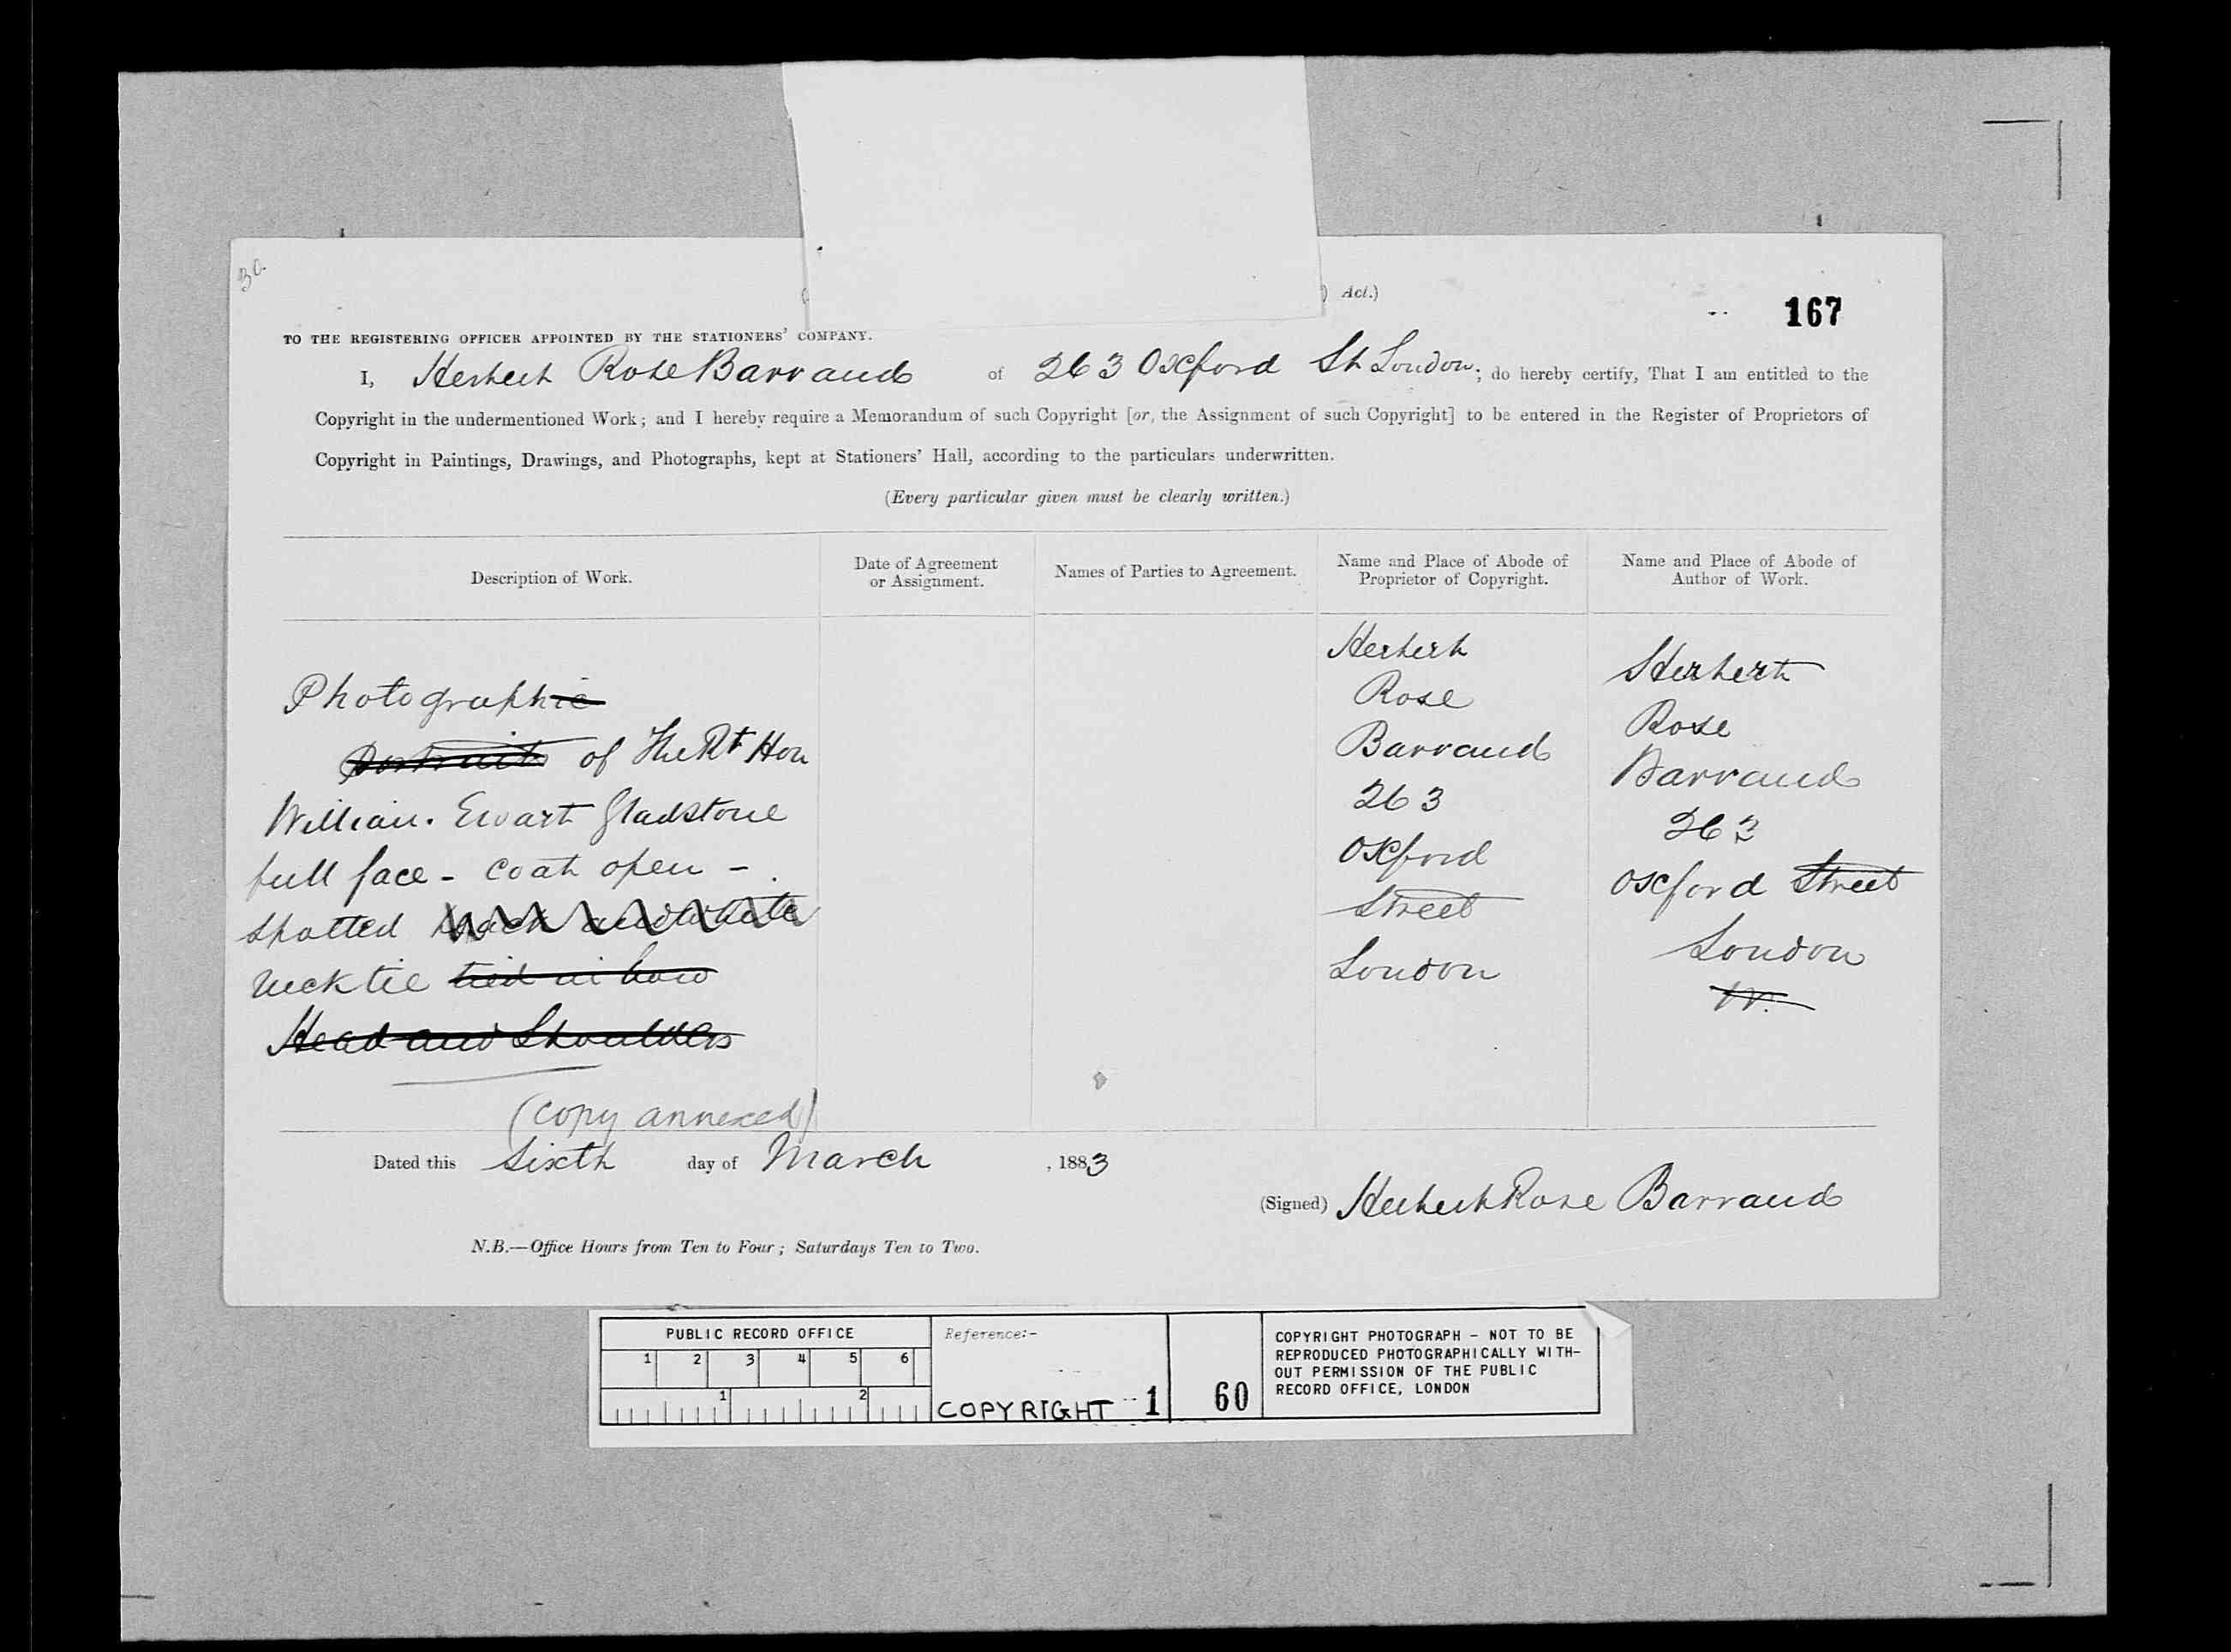 30.
) Act.)
167
TO THE REGISTERING OFFICER APPOINTED BY THE STATIONERS' COMPANY.
I, Herbert Rose Barraud of 263 Oxford St London; do hereby certify, That I am entitled to the
Copyright in the undermentioned Work; and I hereby require a Memorandum of such Copyright [or, the Assignment of such Copyright] to be entered in the Register of Proprietors of
Copyright in Paintings, Drawings, and Photographs, kept at Stationers' Hall, according to the particulars underwritten.
(Every particular given must be clearly written.)
Description of Work.
Date of Agreement
or Assignment.
Names of Parties to Agreement.
Name and Place of Abode of
Proprietor of Copyright.
Name and Place of Abode of
Author of Work.
Photographic
Portraits of The Rt Hon
William. Ewart Gladstone
full face - coat open -
spotted black and white
neck tie tied in bow
Head and Shoulders
(copy annexed)
Herbert
Rose
Barraud
263
Oxford
Street
London
Herbert
Rose
Barraud
263
Oxford Street
London
W.
Dated this Sixth day of March, 1883
(Signed) Herbert Rose Barraud
N.B.—Office Hours from Ten to Four; Saturdays Ten to Two.
PUBLIC RECORD OFFICE
1 2 3 4 5 6
1 2
Reference:-
COPYRIGHT 1 60
COPYRIGHT PHOTOGRAPH - NOT TO BE
REPRODUCED PHOTOGRAPHICALLY WITH-
OUT PERMISSION OF THE PUBLIC
RECORD OFFICE, LONDON